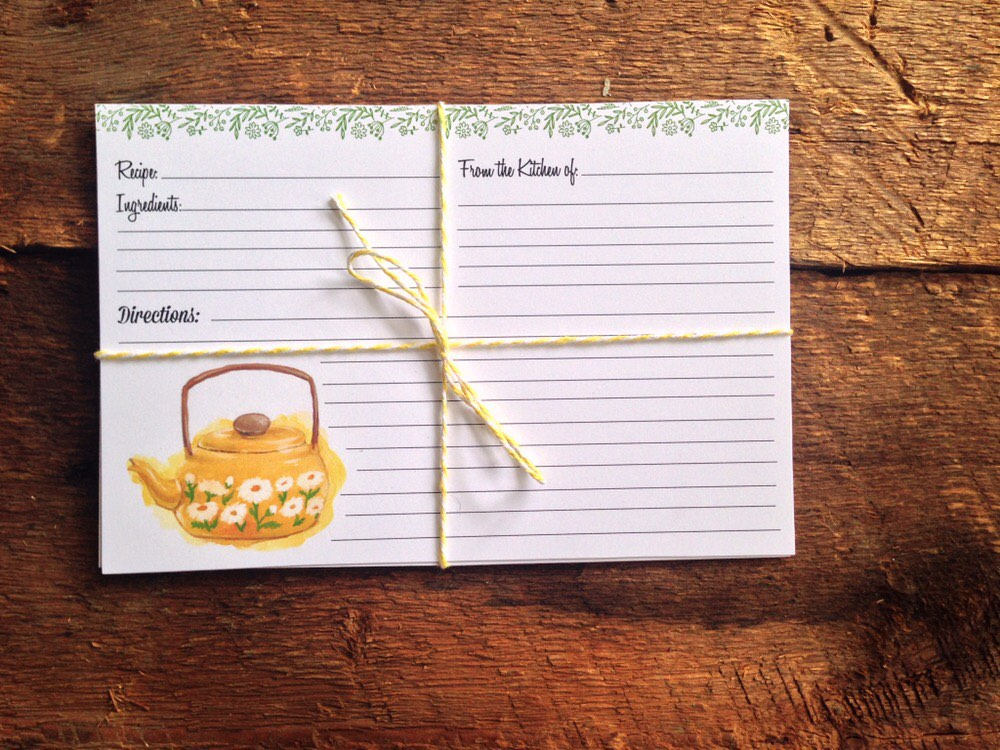 Recipe:
From the Kitchen of:
Ingredients:
Directions: